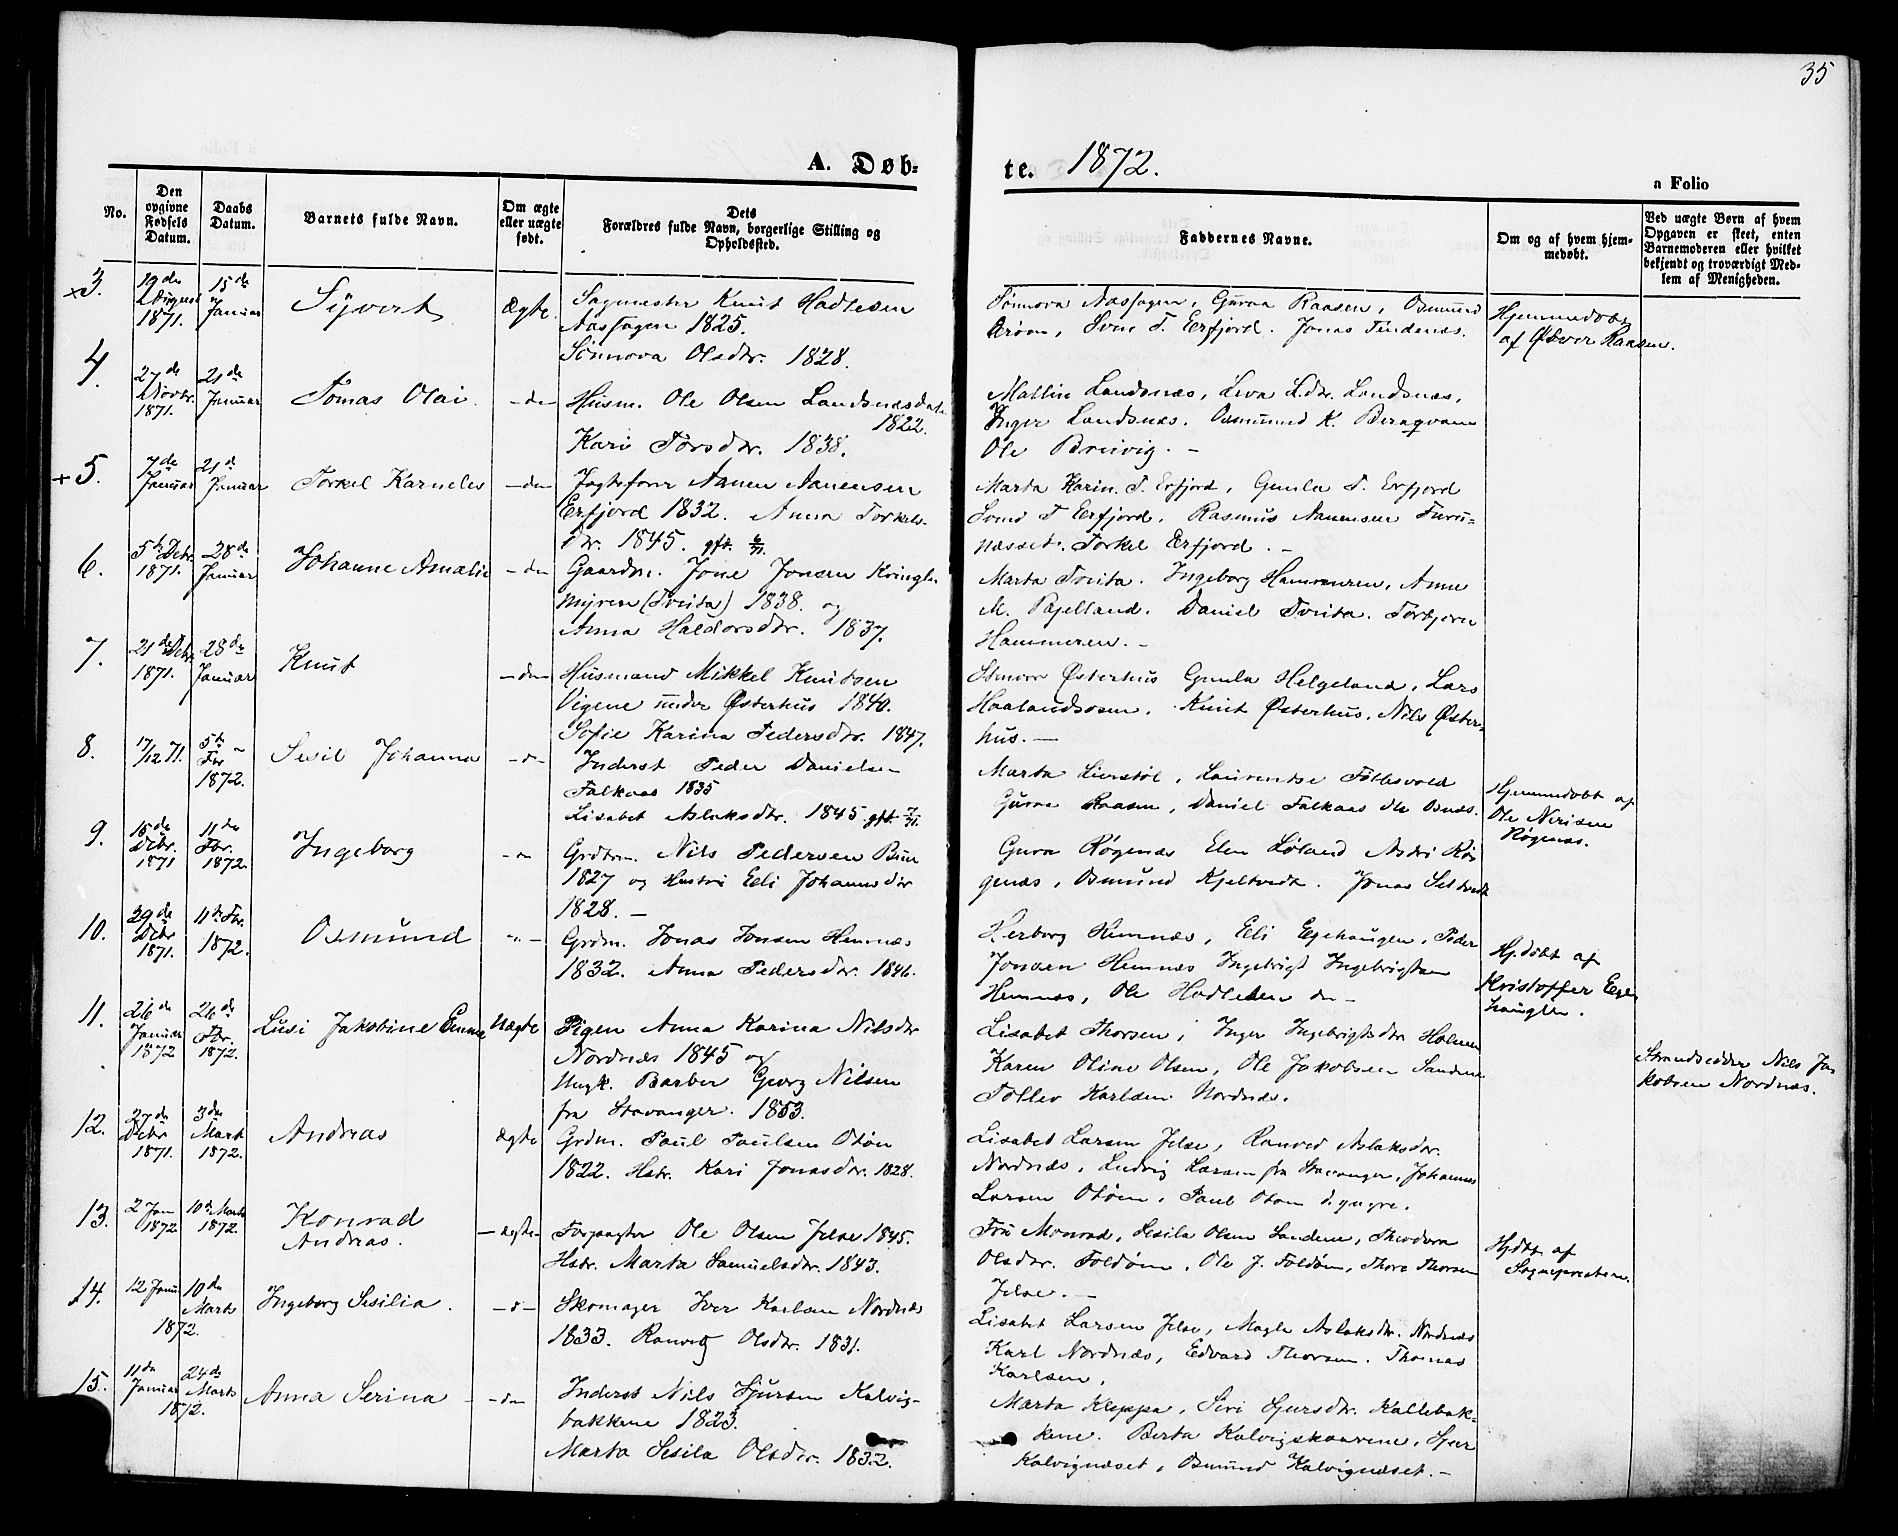 35
A. Døb-
te. 1872.
a Folio
No.
Den opgivne Fødsels Datum.
Daabs Datum.
Barnets fulde Navn.
Om ægte eller uægte født.
Dets Forældres fulde Navn, borgerlige Stilling og Opholdssted.
Faddernes Navne.
Om og af hvem hjemmedøbt.
Ved uægte Børn af hvem Opgaven er skeet, enten Barnemoderen eller hvilket bekjendt og troværdigt Medlem af Menigheden.
+3.
19de 1871.
15de Januar
Syvert
Ægte.
Knut Hadlesen
1825.
Sönnova Olsdtr. 1828.
Gurva Raasen, Osmund
Sven T. Eerfjord. Jonas Tindenæs.
Hjemmedöbt
af Raasen.
4.
27de Novbr. 1871.
21de Januar
Tomas Olai
-do-
Husm. Ole Olsen
1822.
Kari Torsdtr. 1838.
Landsnæs,
Inger Landsnæs. Osmund K.
Ole Breivig. -
+5.
7de Januar
21d Januar
Torkel Karnelius
-do-
Aanen Aanensen
Erfjord 1832. Anna Torkels-
dtr. 1845. gft.
Marta Karin. T. Erfjord, Gunla T. Erfjord
Svend T Eerfjord, Rasmus Aanensen Furu-
næsset. Torkel Erfjord. -
6.
5te Debr 1871.
28de Januar
Johanne Amalie
-do-
Gaardm. Jone Jonsen Kringle-
myren (Tveita) 1838. og
Anna Haldorsdtr. 1837.
Marta Tveita. Ingeborg Hammeren, Anne
M. Daniel Tveita. Torbjörn
Hammeren. -
7.
21de Debr. 1871.
28de Januar
Knut
-do-
Husmand Mikkel Knutsen
Vigene under Østerhus 1840.
Sofie Karina Pedersdtr. 1847.
Østerhus Gunla Helgeland, Lars
Haalandsosen. Knut Østerhus, Nils Øster-
hus. -
8.
17/12 71.
5te Fbr 1872.
Sesil Johanna
-do-
Inderst Peder Danielsen
Falkaas 1835
Lisabet Aslaksdtr. 1845 gft.
Marta
Gurva Raasen, Daniel Falkaas
Hjemmedöbt af
Ole
Røgenæs.
9.
15de Debr. 1871
11de Fbr. 1872.
Ingeborg
Grdbrm. Nils Pedersen
1827 og Hustru Eli
1828. -
Gurva Røgenæs Elen
genæs, Osmund
10.
29de Debr 1871.
11te Fbr. 1872.
Osmund
Grdm. Jonas Jonsen Hemnæs
1832. Anna Pedersdtr. 1846.
Herborg Hemnæs, Eli Egehaugen, Peder
Jonsen Hemnæs Ingebrigt Ingebrigtsen
Hemnæs, Ole
Hj.döbt af
Kristoffer Ege-
haugen.
11.
26de Januar 1872
26de Fbr. 1872.
Lusi Jakobine Emma
Uægte
Pigen Anna Karina Nilsdtr
Nordnæs 1845 og
Ungk. Barber Georg Nilsen
fra Stavanger. 1853.
Lisabet Thorsen, Inger Ingebrigtsdtr
Karen Oline Olsen, Ole Jakobsen Sandene
Tollev Karlsen Nordnæs.
Strandsidder Nils Ja-
kobsen Nordnæs.
12.
27de Debr 1871.
3de Marts 1872.
Andreas
ægte
Grdm. Paul Paulsen Otöen
1822. Hstr. Kari Jonasdtr. 1828.
Lisabet Larsen Jelse, Ranved Aslaksdtr.
Nordnæs, Ludvig Larsen fra Stavanger, Johannes
Larsen Otöen, Paul Otöen d. yngre.
13.
2 Jan 1872
10de Marts 1872.
Konrad
Andreas.
-ægte-
Ole Olsen Jelse 1845.
Hstr. Marta Samuelsdtr. 1843.
Fru Monrad, Sesila Olsen Sandene, Theodora
Olsdtr. Foldöen, Ole J. Foldöen, Thore Thorsen
Jelse. -
Hjdbt af
Sognepresten.
14.
12 Januar
10de Marts
1872.
Ingeborg Sesilia.
-d-
Skomager Iver Karlsen Nordnæs
1833. Ranveg Olsdtr. 1831.
Lisabet Larsen Jelse, Magla Aslaksdtr. Nordnæs
Karl Nordnæs, Edvard Thorsen. Thomas
Karlsen.
15.
11de Januar
24de Marts
1872.
Anna Serina
-do-
Inderst Nils Sjursen Kalvig-
bakkene 1823.
Marta Sesila Olsdtr. 1832.
Marta Kleppa, Siri Sjursdtr. Kallebak-
kene. Berta Sjur
Kalvignæset, Osmund Kalvignæset. -